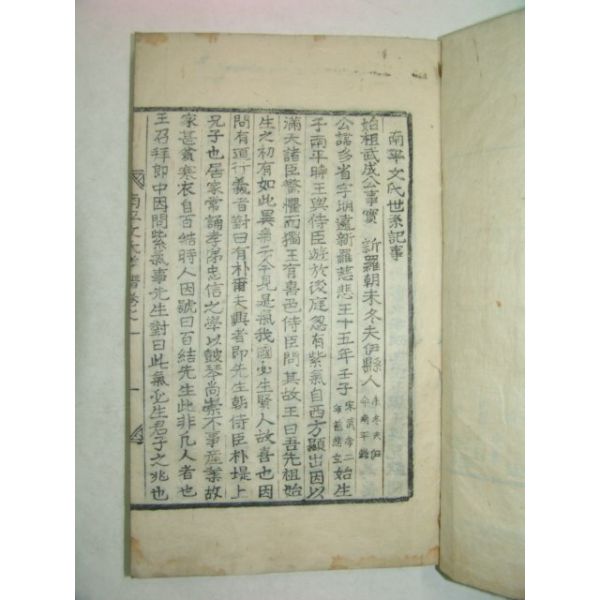 南平文氏世系記事
始祖武成公事實 新羅朝未冬夫伊縣人 未冬夫伊今南平縣
公諱多省字明遠新羅慈悲王十五年壬子 始生
子南平時王與侍臣遊於後庭忽有紫氣自西方顯出因以
滿天諸臣驚懼而獨王有喜色侍臣問其故王曰吾先祖始
生之初有如此異氣云今見是氣我國必生賢人故喜也因
問有道行義者對曰有朴爾夫興者即先生朝侍臣朴堤上
兄子也居家常誦孝悌忠信之學以鼓琴尚崇不事産業故
家甚貧寒衣自百結時人因號曰百結先生此非凡人者也
王召拜即中因問紫氣事先生對曰此氣必生君子之兆也
南平文氏 譜卷之一